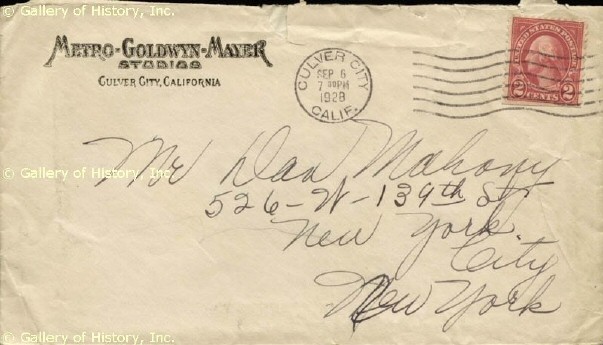 © Gallery of History, Inc.
METRO-GOLDWYN-MAYER
STUDIOS
CULVER CITY, CALIFORNIA
CULVER CITY
SEP 6
7 30PM
1928
CALIF.
UNITED STATES POSTAGE
2 CENTS 2
© Gallery of History, Inc.
Mr Dan Mahony
526-W-139th St
New York
City
New York
© Gallery of History, Inc.